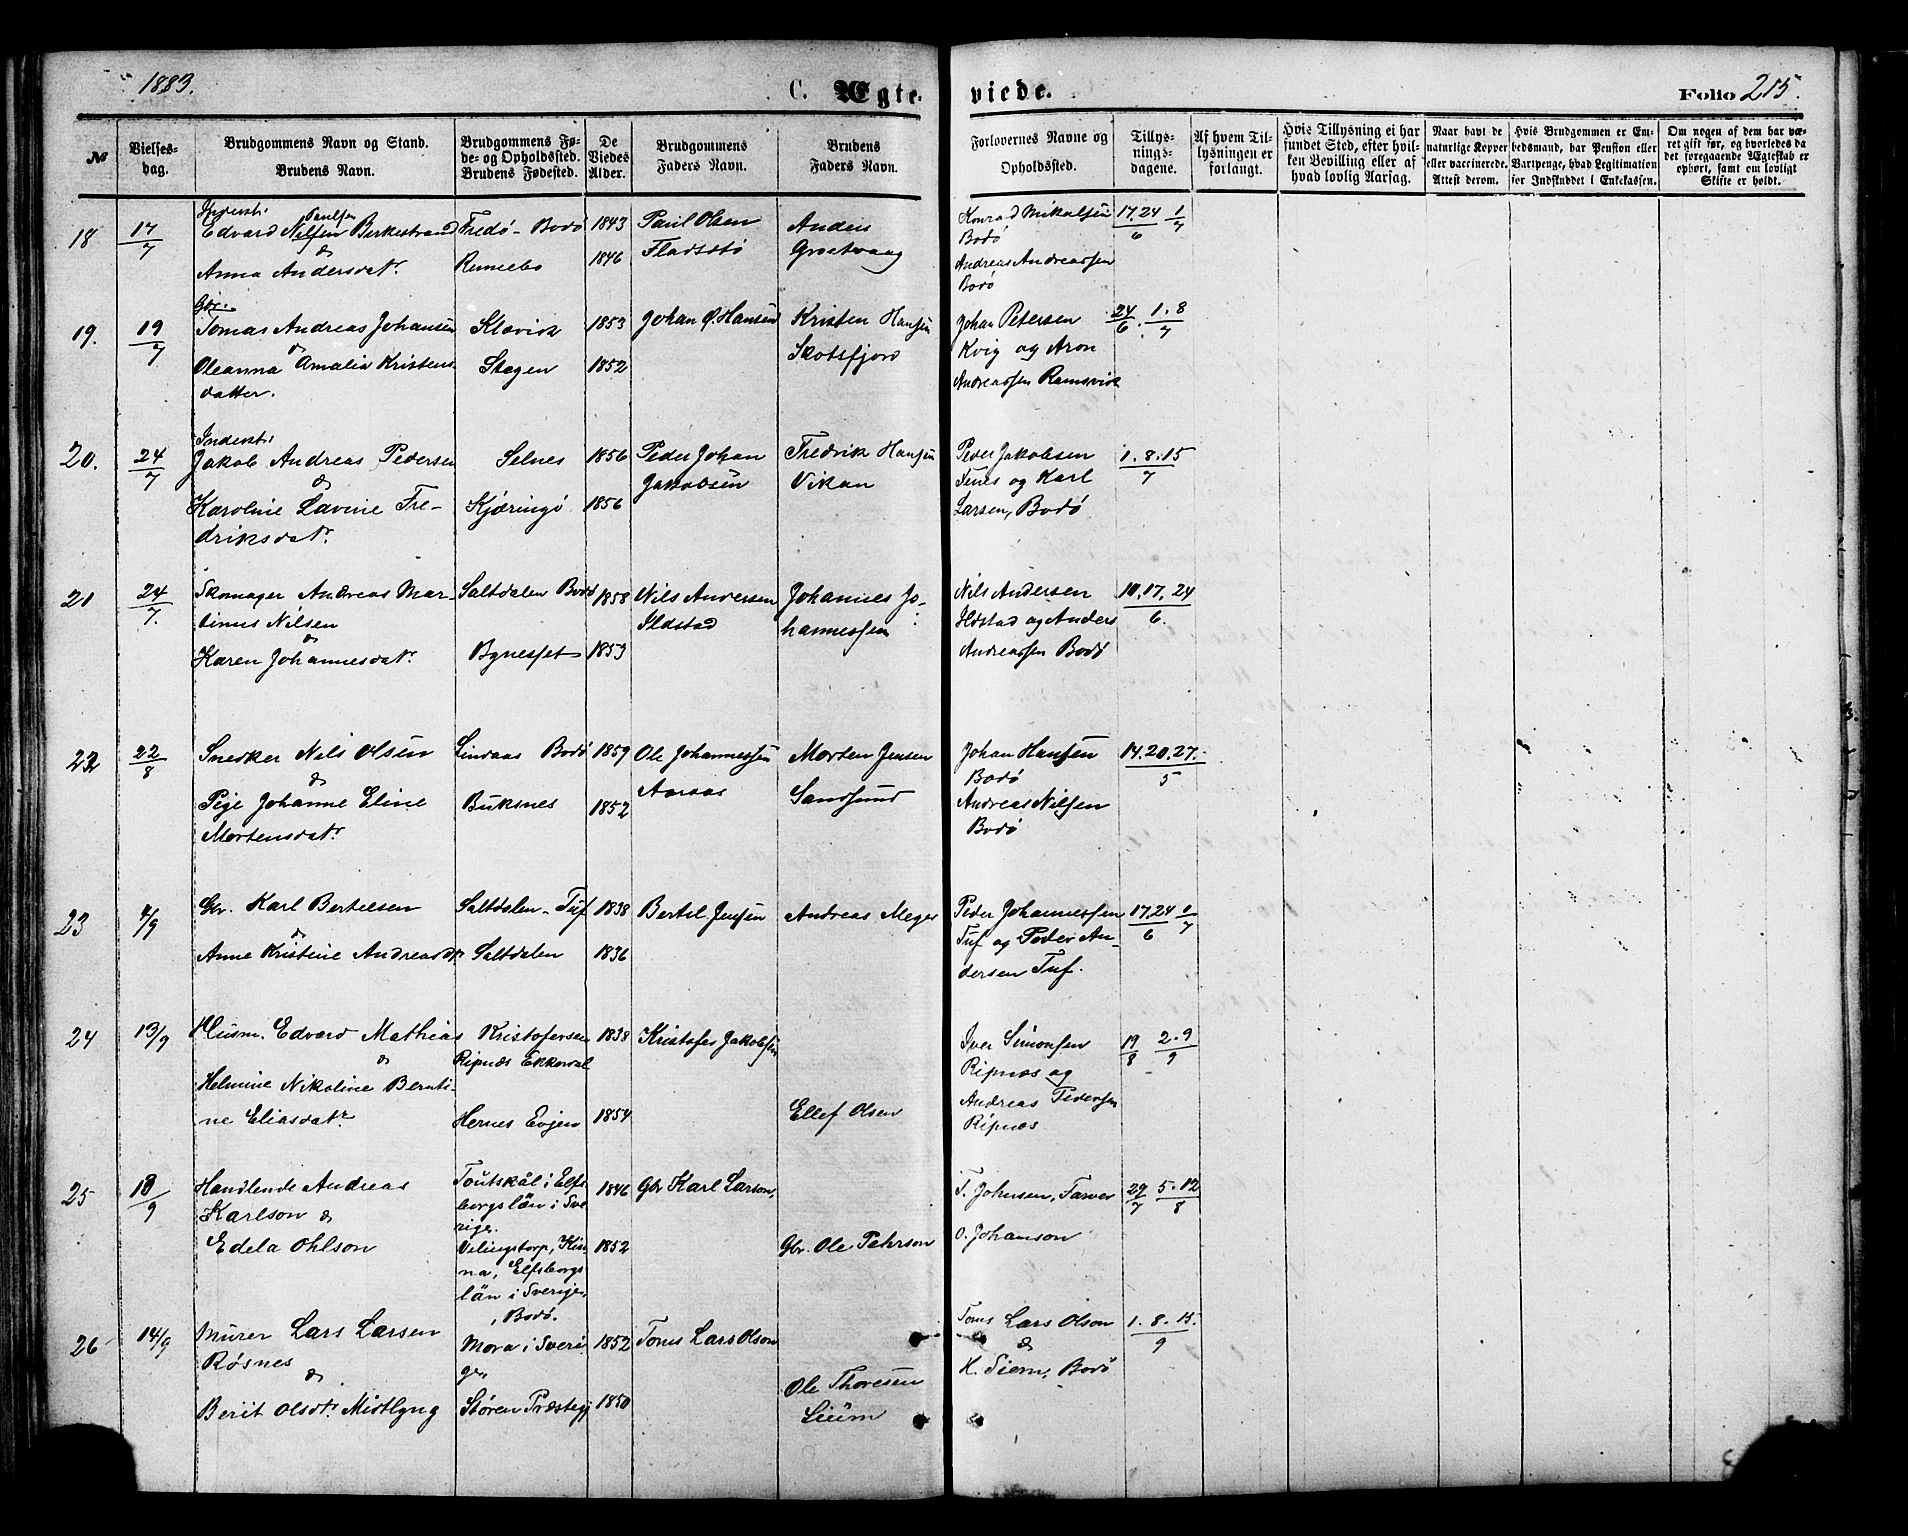 1883.
C. Ægte-
viede.
Folio 215.
№
Vielses-
dag.
Brudgommens Navn og Stand.
Brudens Navn.
Brudgommens Fø-
de- og Opholdssted.
Brudens Fødested.
De
Viedes
Alder.
Brudgommens
Faders Navn.
Brudens
Faders Navn.
Forlovernes Navne og
Opholdssted.
Tillys-
nings-
dagene.
Af hvem Til-
lysningen er
forlangt.
Hvis Tillysning ei har
fundet Sted, efter hvil-
ken Bevilling eller af
hvad lovlig Aarsag.
Naar havt de
naturlige Kopper
eller vaccinerede.
Attest derom.
Hvis Brudgommen er Em-
bedsmand, har Pension eller
Vartpenge, hvad Legitimation
for Indskuddet i Enkekassen.
Om nogen af dem har væ-
ret gift før, og hvorledes da
det foregaaende Ægteskab er
ophørt, samt om lovligt
Skifte er holdt.
18 17/7
Inderst.
Edvard Nilsen Paulsen Birkestrand
&
Anna Andersdatr.
Fredø - Bodø
1843
1846
Paul Olsen
Anders
Konrad Mikalsen
Bodø
Andreas Andreassen
Bodø
17.24/6 1/7
19. 19/7
Gbr.
Tomas Andreas Johansen
&
Oleanna Amalia Kristens
datter.
Klævik
Stegen
1853
1852
Johan O. Hansen
Kristen Hansen
Skotsfjord
Johan Petersen
Kvig og Aron
Andreassen Ramsvik
24/6. 1.8/7
20. 24/7
Inderst.
Jakob Andreas Pedersen
&
Karoline Lavine Fre-
driksdatr.
Selnes
Kjæringø
1856
1856
Peder Johan
Jakobsen
Fredrik Hansen
Vikan
Peder Jakobsen
Tunes og Karl
Larsen, Bodø
1.8.15/7
21 24/7.
Skomager Andreas Mar-
tinus Nilsen
&
Karen Johannesdatr.
Saltdalen Bodø
Bynesset
1858
1853
Nils Andersen
Ildstad
Johannes Jo-
hannessen
Nils Andersen
Ildstad og Anders
Andreassen Bodø
10.17.24/6.
22 22/8
Snedker Nils Olsen
&
Pige Johanne Eline
Mortensdatr.
Lindaas Bodø
Buksnes
1859
1852
Ole Johannessen
Aaraas
Morten Jensen
Sandsund
Johan Hansen
Bodø
Andreas Nilsen
Bodø
14.20.27./5
23
Gbr. Karl Bertelsen
&
Anne Kristine Andreasdr
Saltdalen - Tuf
Saltdalen
1838
1836
Bertel Jensen
Andreas Meger
Peder Johannessen
Tuf og Peder An-
dersen Tuf.
17.24/6 1/7
24 13/9
Husm. Edvard Mathias
&
Helmine Nikoline Bernti-
ne Eliasdatr.
Kristofersen
Ripnæs Ekkerdal
Hernes Evjen
1838
1854
Kristofer Jakobsen
Ellef Olsen
Iver Simonsen
Ripnæs og
Andreas Pedersen
Ripnæs
19/8 2.9/9
25 13/9
Handlende Andreas
Karlson &
Edela Ohlson
Toutskål i Elfs
borgs län i Sve
rige.
Velingstorp, Kin
na, Elfsborgs
län i Sverige,
, Bodø.
1846
1852
Gbr Karl Larson,
Gbr. Ole Pehrson
T. Johnsen, Farver
O. Johanson
29/7 5.12/8
26 14/9
Murer Lars Larsen
Røsnes
&
Berit Olsdr. Midtlyng
Mora i Sveri
ge,
Støren Præstegj
1852
1850
Toms Lars Olson
Ole Thoresen
Lium
Toms Lars Olson
&
H. Siem, Bodø
1.8.15./9